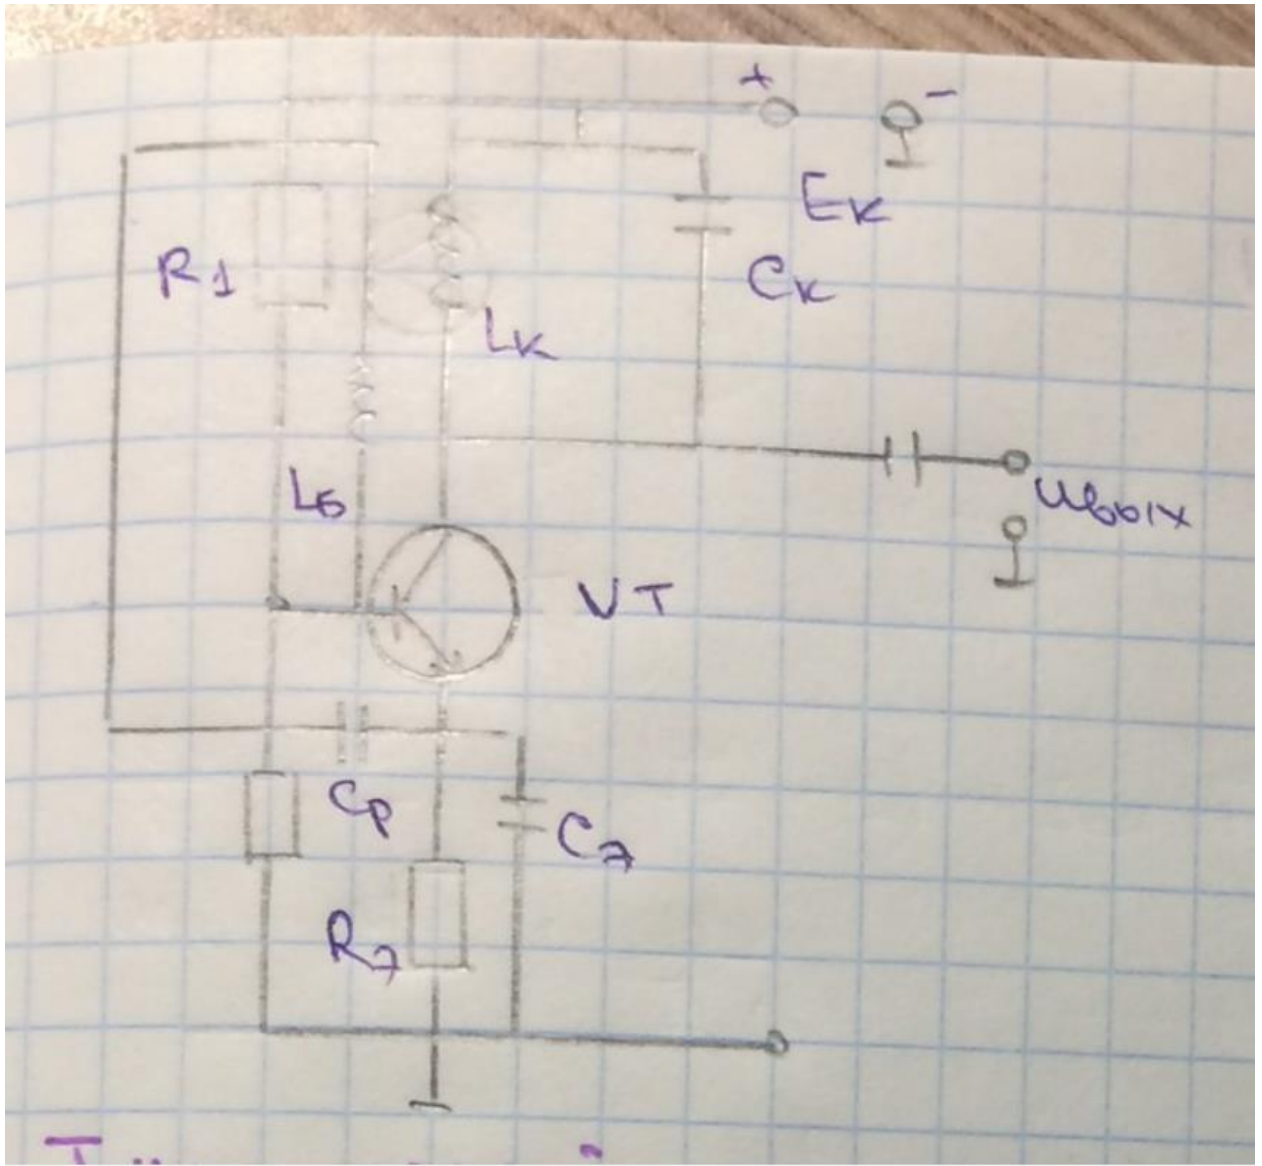 + -
Eк
R1
Cк
Lк
Lб
Uвых
VT
Cр
Cэ
Rэ